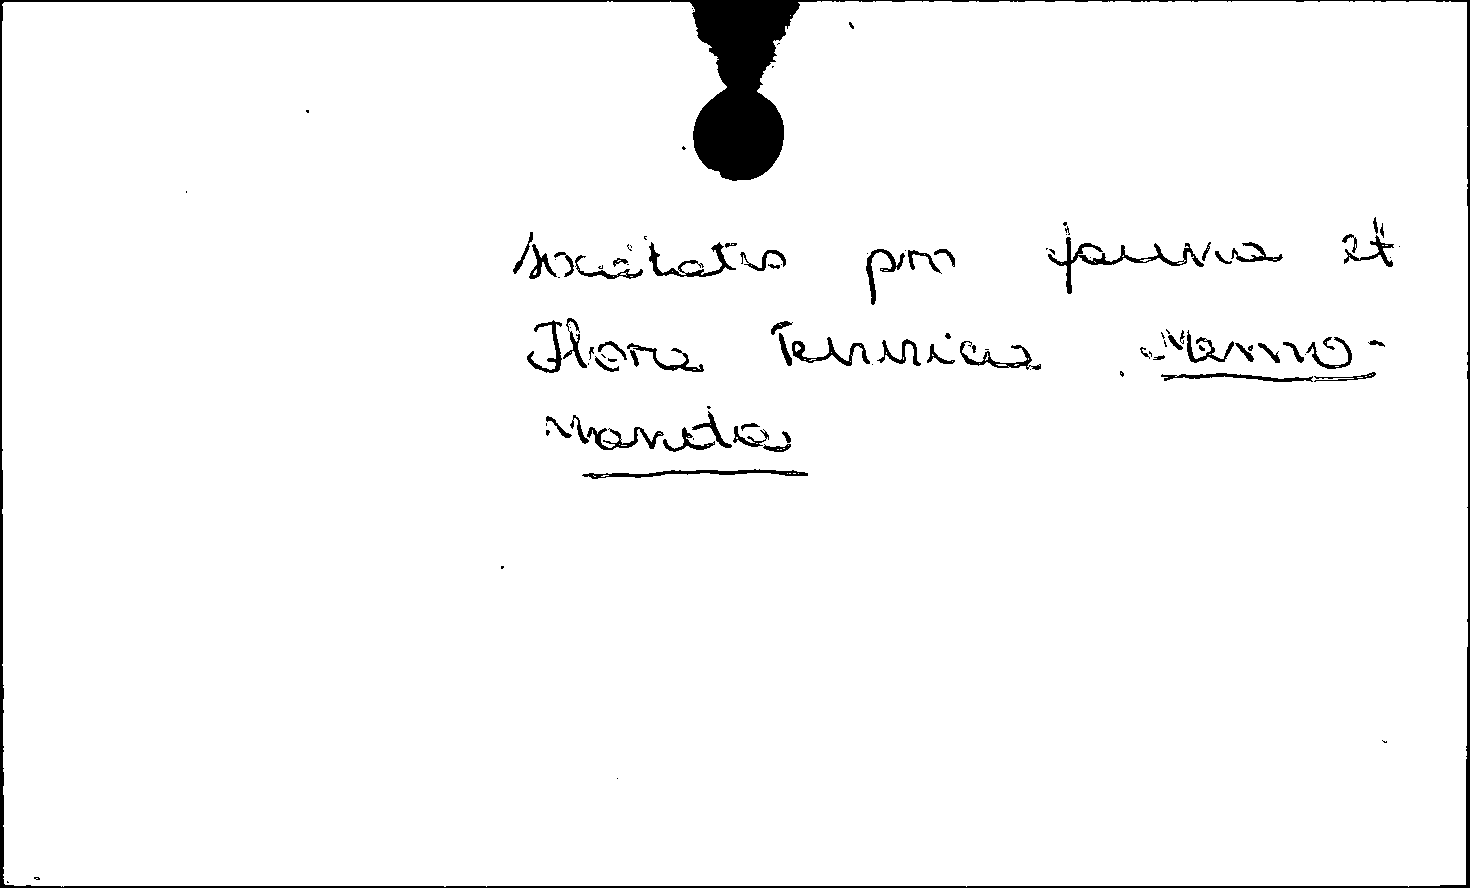 societatis pro fauna et
Flora Fennica. Memo-
randa